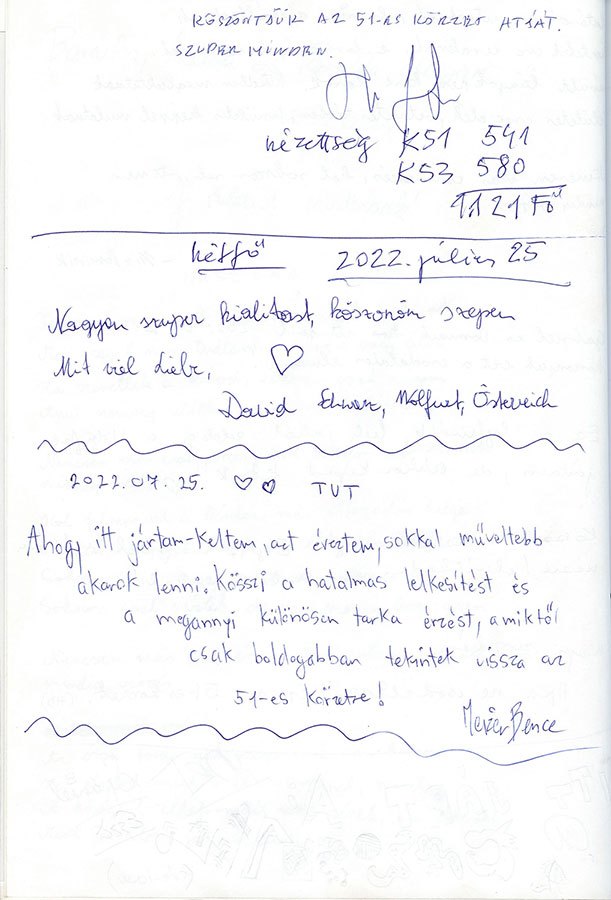 KÖSZÖNTJÜK AZ 51-ES KÖRZET ATYÁT.
SZUPER MINDEN.
nézettség K51 541
K53 580
1121 Fő
hétfő 2022. július 25
Nagyon szuper kiálitast, köszönöm szepen
Mit viel Liebe,
David Schwarz, Wolfurt, Österreich
2022.07.25. TVT
Ahogy itt jártam-keltem, azt éreztem, sokkal műveltebb
akarok lenni. Köszi a hatalmas lelkesítést és
a megannyi különösen tarka érzést, amiktől
csak boldogabban tekintek vissza az
51-es Körzetre!
Bence